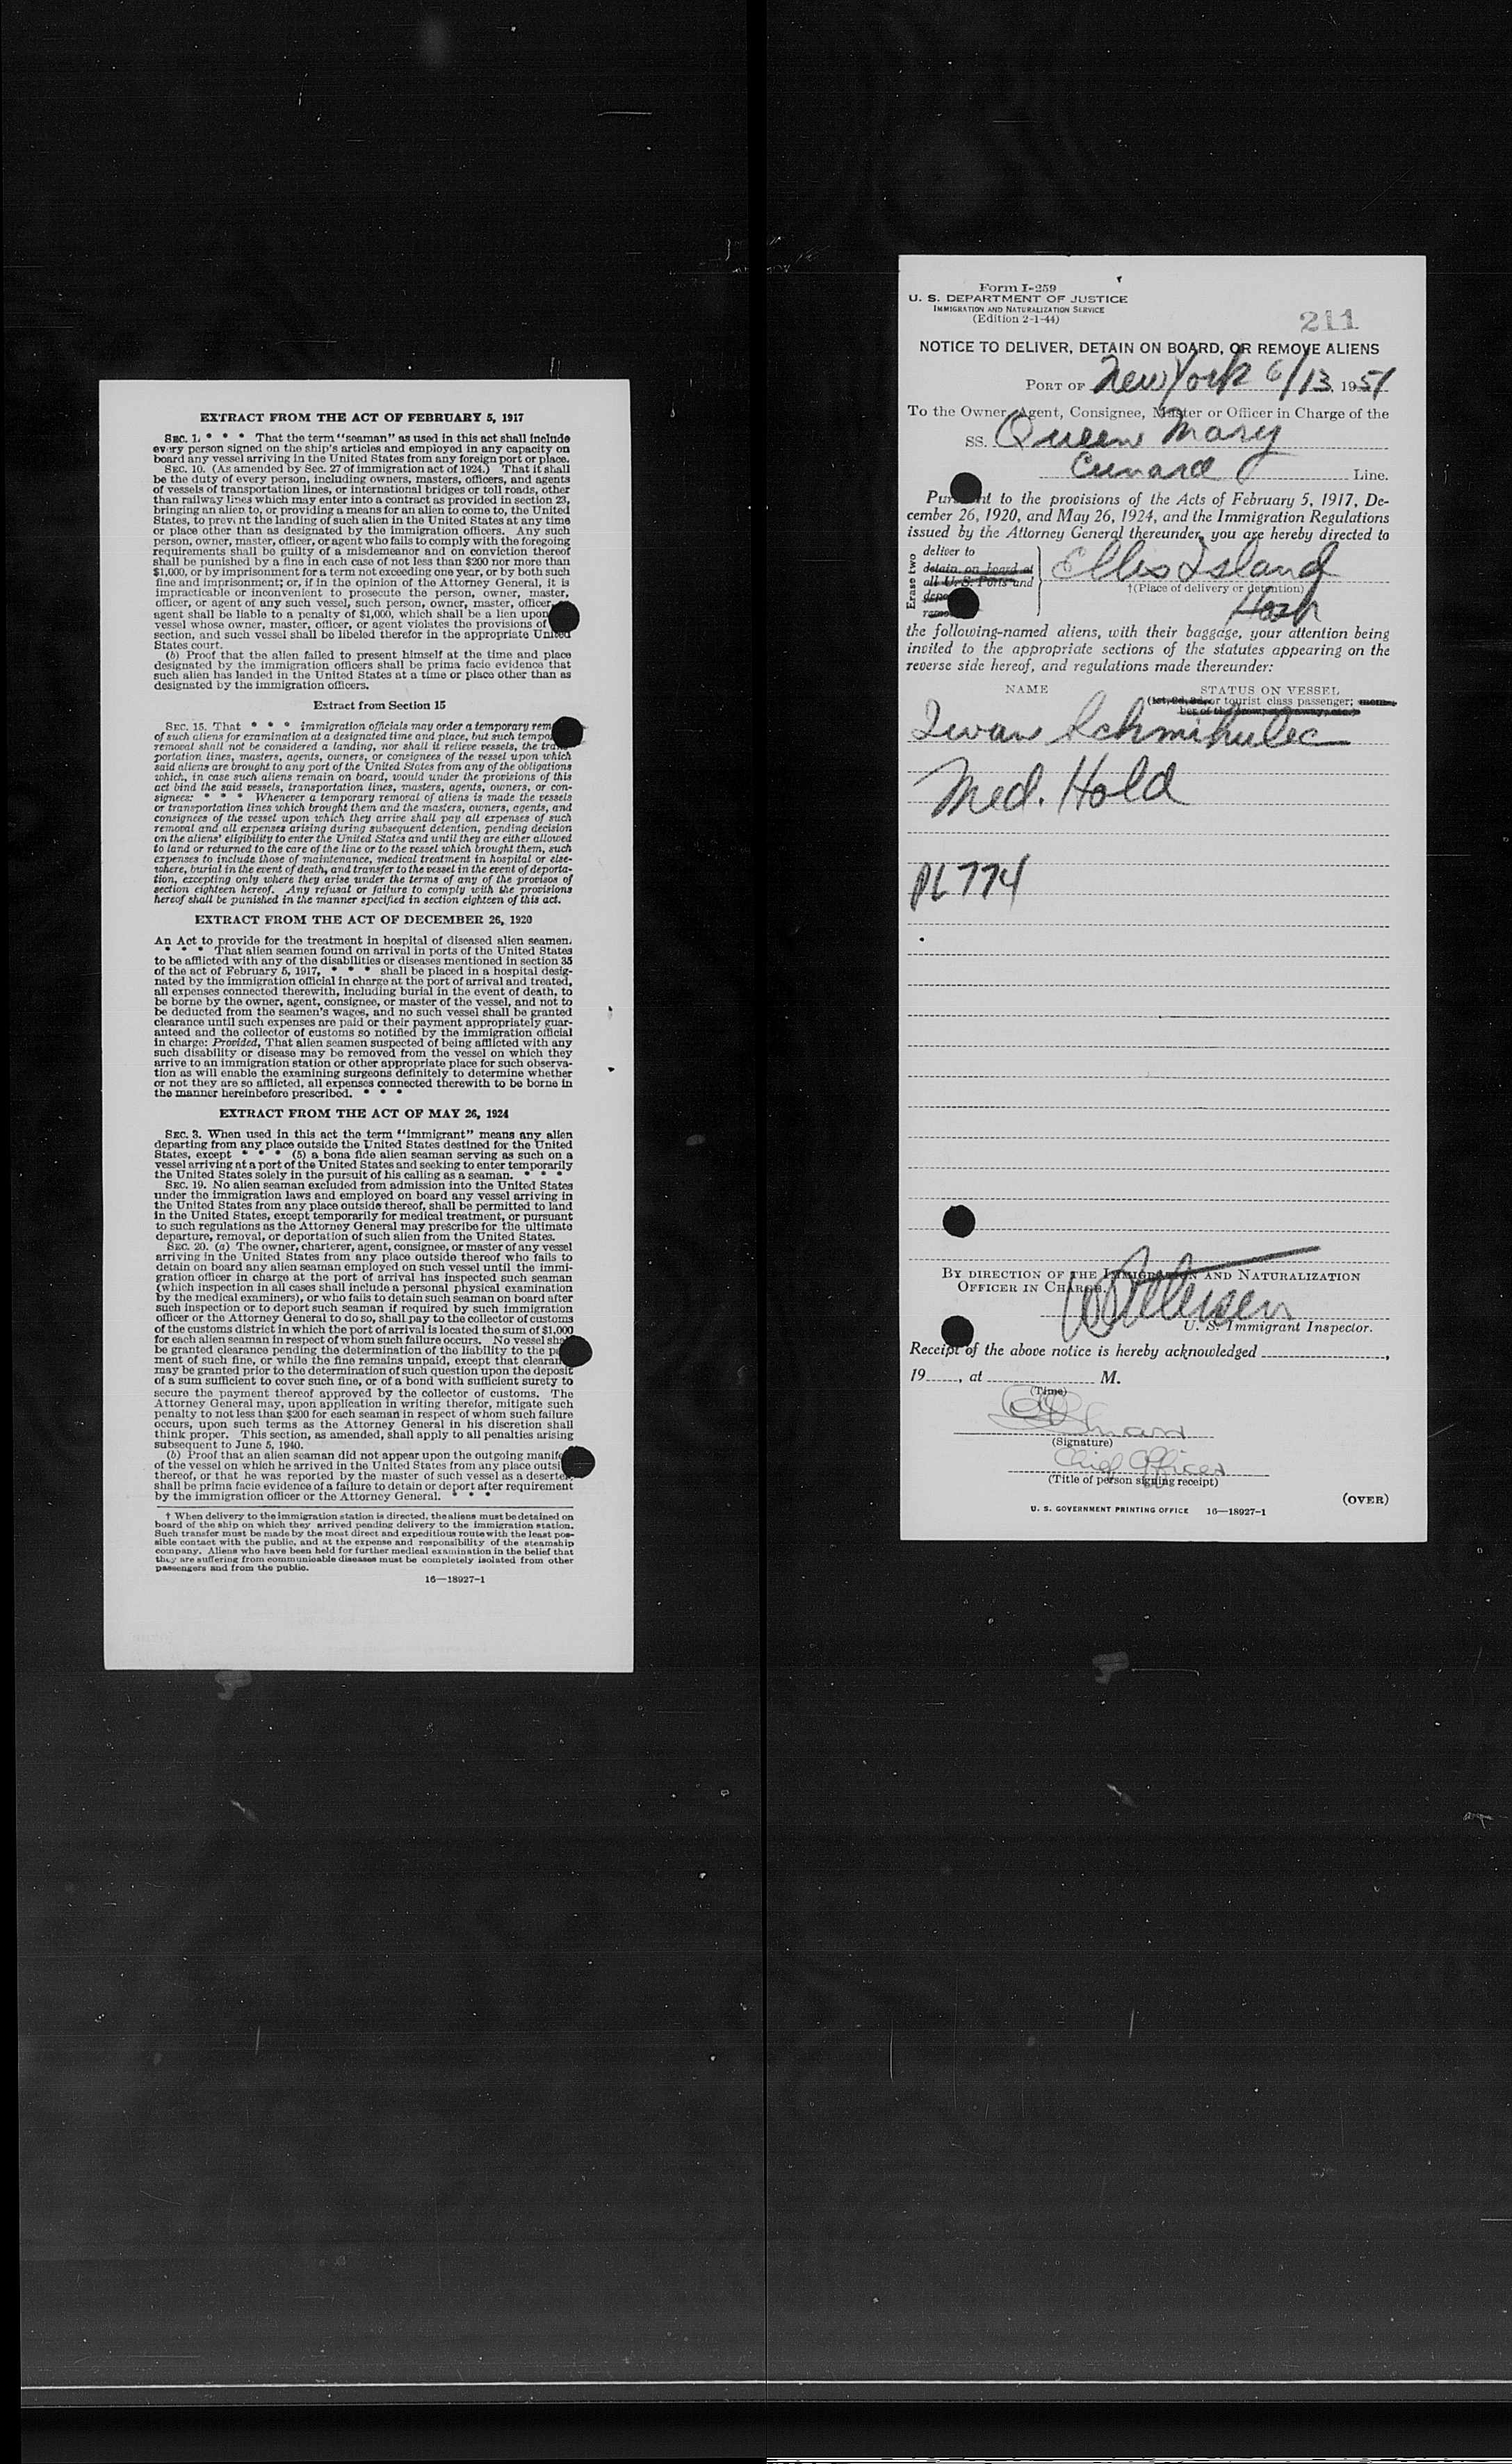 EXTRACT FROM THE ACT OF FEBRUARY 5, 1917
SEC. 1. * * * That the term "seaman" as used in this act shall include
every person signed on the ship's articles and employed in any capacity on
board any vessel arriving in the United States from any foreign port or place.
SEC. 10. (As amended by Sec. 27 of immigration act of 1924.) That it shall
be the duty of every person, including owners, masters, officers, and agents
of vessels of transportation lines, or international bridges or toll roads, other
than railway lines which may enter into a contract as provided in section 23,
bringing an alien to, or providing a means for an alien to come to, the United
States, to prevent the landing of such alien in the United States at any time
or place other than as designated by the immigration officers. Any such
person, owner, master, officer, or agent who fails to comply with the foregoing
requirements shall be guilty of a misdemeanor and on conviction thereof
shall be punished by a fine in each case of not less than $200 nor more than
$1,000, or by imprisonment for a term not exceeding one year, or by both such
fine and imprisonment; or, if in the opinion of the Attorney General, it is
impracticable or inconvenient to prosecute the person, owner, master,
officer, or agent of any such vessel, such person, owner, master, officer,
agent shall be liable to a penalty of $1,000, which shall be a lien upon
vessel whose owner, master, officer, or agent violates the provisions of
section, and such vessel shall be libeled therefor in the appropriate United
States court.
(b) Proof that the alien failed to present himself at the time and place
designated by the immigration officers shall be prima facie evidence that
such alien has landed in the United States at a time or place other than as
designated by the immigration officers.
Extract from Section 15
SEC. 15. That * * * immigration officials may order a temporary rem
of such aliens for examination at a designated time and place, but such tempo
removal shall not be considered a landing, nor shall it relieve vessels, the tran
portation lines, masters, agents, owners, or consignees of the vessel upon which
said aliens are brought to any port of the United States from any of the obligations
which, in case such aliens remain on board, would under the provisions of this
act bind the said vessels, transportation lines, masters, agents, owners, or con-
signees: * * * Whenever a temporary removal of aliens is made the vessels
or transportation lines which brought them and the masters, owners, agents, and
consignees of the vessel upon which they arrive shall pay all expenses of such
removal and all expenses arising during subsequent detention, pending decision
on the aliens' eligibility to enter the United States and until they are either allowed
to land or returned to the care of the line or to the vessel which brought them, such
expenses to include those of maintenance, medical treatment in hospital or else-
where, burial in the event of death, and transfer to the vessel in the event of deporta-
tion, excepting only where they arise under the terms of any of the provisos of
section eighteen hereof. Any refusal or failure to comply with the provisions
hereof shall be punished in the manner specified in section eighteen of this act.
EXTRACT FROM THE ACT OF DECEMBER 26, 1920
An Act to provide for the treatment in hospital of diseased alien seamen.
* * * That alien seamen found on arrival in ports of the United States
to be afflicted with any of the disabilities or diseases mentioned in section 35
of the act of February 5, 1917, * * * shall be placed in a hospital desig-
nated by the immigration official in charge at the port of arrival and treated,
all expenses connected therewith, including burial in the event of death, to
be borne by the owner, agent, consignee, or master of the vessel, and not to
be deducted from the seamen's wages, and no such vessel shall be granted
clearance until such expenses are paid or their payment appropriately guar-
anteed and the collector of customs so notified by the immigration official
in charge: Provided, That alien seamen suspected of being afflicted with any
such disability or disease may be removed from the vessel on which they
arrive to an immigration station or other appropriate place for such observa-
tion as will enable the examining surgeons definitely to determine whether
or not they are so afflicted, all expenses connected therewith to be borne in
the manner hereinbefore prescribed. * * *
EXTRACT FROM THE ACT OF MAY 26, 1924
SEC. 3. When used in this act the term "immigrant" means any alien
departing from any place outside the United States destined for the United
States, except * * * (5) a bona fide alien seaman serving as such on a
vessel arriving at a port of the United States and seeking to enter temporarily
the United States solely in the pursuit of his calling as a seaman. * * *
SEC. 19. No alien seaman excluded from admission into the United States
under the immigration laws and employed on board any vessel arriving in
the United States from any place outside thereof, shall be permitted to land
in the United States, except temporarily for medical treatment, or pursuant
to such regulations as the Attorney General may prescribe for the ultimate
departure, removal, or deportation of such alien from the United States.
SEC. 20. (a) The owner, charterer, agent, consignee, or master of any vessel
arriving in the United States from any place outside thereof who fails to
detain on board any alien seaman employed on such vessel until the immi-
gration officer in charge at the port of arrival has inspected such seaman
(which inspection in all cases shall include a personal physical examination
by the medical examiners), or who fails to detain such seaman on board after
such inspection or to deport such seaman if required by such immigration
officer or the Attorney General to do so, shall pay to the collector of customs
of the customs district in which the port of arrival is located the sum of $1,000
for each alien seaman in respect of whom such failure occurs. No vessel sha
be granted clearance pending the determination of the liability to the pa
ment of such fine, or while the fine remains unpaid, except that clearan
may be granted prior to the determination of such question upon the deposit
of a sum sufficient to cover such fine, or of a bond with sufficient surety to
secure the payment thereof approved by the collector of customs. The
Attorney General may, upon application in writing therefor, mitigate such
penalty to not less than $200 for each seaman in respect of whom such failure
occurs, upon such terms as the Attorney General in his discretion shall
think proper. This section, as amended, shall apply to all penalties arising
subsequent to June 5, 1940.
(b) Proof that an alien seaman did not appear upon the outgoing manife
of the vessel on which he arrived in the United States from any place outsi
thereof, or that he was reported by the master of such vessel as a deserter,
shall be prima facie evidence of a failure to detain or deport after requirement
by the immigration officer or the Attorney General. * * *
† When delivery to the immigration station is directed, the aliens must be detained on
board of the ship on which they arrived pending delivery to the immigration station.
Such transfer must be made by the most direct and expeditious route with the least pos-
sible contact with the public, and at the expense and responsibility of the steamship
company. Aliens who have been held for further medical examination in the belief that
they are suffering from communicable diseases must be completely isolated from other
passengers and from the public.
16—18927-1
Form I-259
U. S. DEPARTMENT OF JUSTICE
IMMIGRATION AND NATURALIZATION SERVICE
(Edition 2-1-44)
211
NOTICE TO DELIVER, DETAIN ON BOARD, OR REMOVE ALIENS
PORT OF New York 6/13, 1951
To the Owner, Agent, Consignee, Master or Officer in Charge of the
SS. Queen Mary
Cunard Line.
Pursuant to the provisions of the Acts of February 5, 1917, De-
cember 26, 1920, and May 26, 1924, and the Immigration Regulations
issued by the Attorney General thereunder, you are hereby directed to
Erase two
deliver to
detain on board at
all U. S. Ports and
depo
remo
Ellis Island
†(Place of delivery or detention)
Hosp
the following-named aliens, with their baggage, your attention being
invited to the appropriate sections of the statutes appearing on the
reverse side hereof, and regulations made thereunder:
NAME STATUS ON VESSEL
(1st, 2d, 3d, or tourist class passenger; mem-
ber of the crew, stowaway, etc.)
Iwan Schmihulec
Med. Hold
PL 774
BY DIRECTION OF THE IMMIGRATION AND NATURALIZATION
OFFICER IN CHARGE.
Petersen
U. S. Immigrant Inspector.
Receipt of the above notice is hereby acknowledged
19, at M.
(Time)
(Signature)
Chief Officer
(Title of person signing receipt)
U. S. GOVERNMENT PRINTING OFFICE 16—18927-1
(OVER)